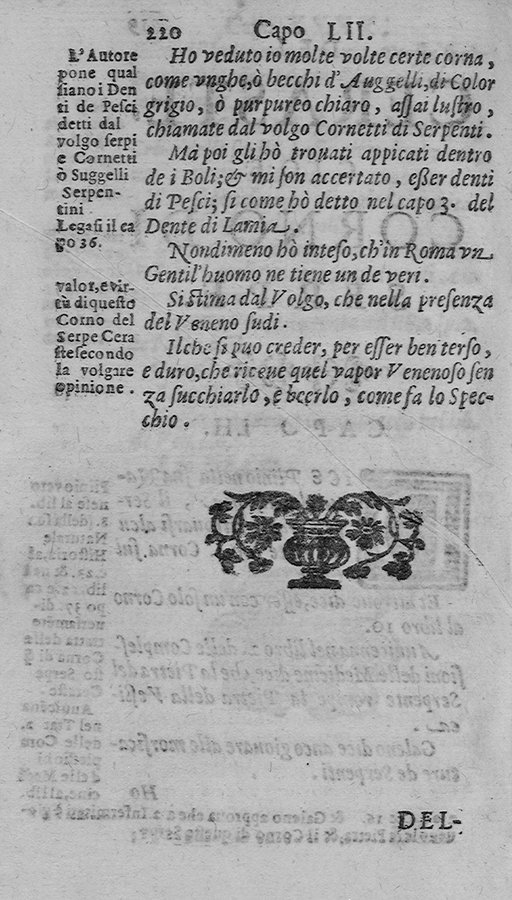 220 Capo LII.
L'Autore
pone qual
siano i Den
ti de Pesci
detti dal
volgo serpi
e Cornetti
ò Suggelli
Serpen-
tini
Legasi il ca
po 36.
valor, e vir-
tù di questo
Corno del
Serpe Cera
ste secondo
la volgare
opinione.
Ho veduto io molte volte certe corna,
come vnghe, ò becchi d'Auggelli, di Color
grigio, ò purpureo chiaro, assai lustro,
chiamate dal volgo Cornetti di Serpenti.
Mà poi gli hò trouati appicati dentro
de i Boli; & mi son accertato, eßer denti
di Pesci; si come hò detto nel capo 3. del
Dente di Lamia.
Nondimeno hò inteso, ch'in Roma vn
Gentil'huomo ne tiene un de veri.
Si stima dal Volgo, che nella presenza
del Veneno sudi.
Il che si puo creder, per esser ben terso,
e duro, che riceue quel vapor Venenoso sen
za succhiarlo, e beerlo, come fa lo Spec-
chio.
DEL-